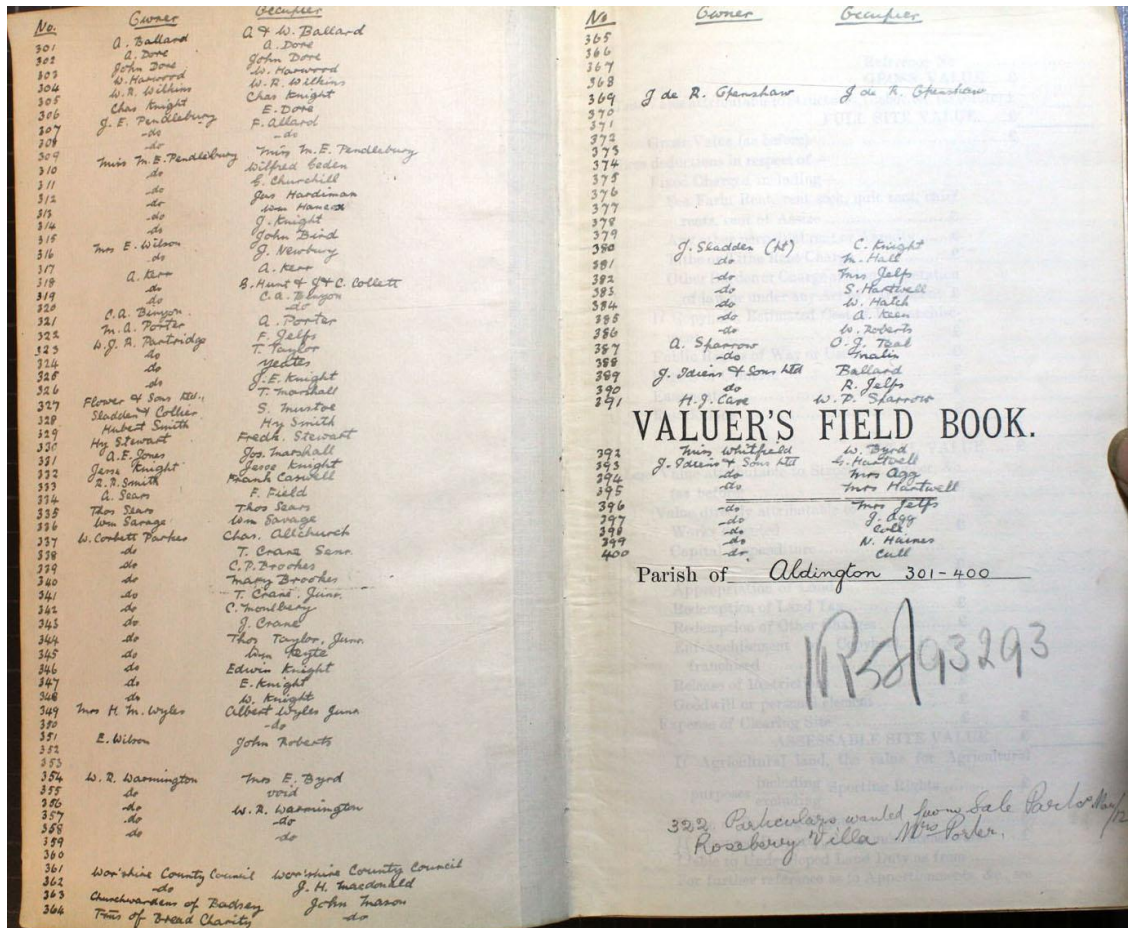 No. Owner Occupier
301 A. Ballard A & W. Ballard
302 A. Dore A. Dore
303 John Dore John Dore
304 W. Harwood W. Harwood
305 W. R. Wilkins W. R. Wilkins
306 Chas Knight Chas Knight
307 J. E. Pendlebury E. Dore
308 -do- F. Allard
309 -do- -do-
310 Miss M. E. Pendlebury Miss M. E. Pendlebury
311 do Wilfred Geden
312 do G. Churchill
313 do Jas Hardiman
314 do Wm Hancox
315 do J. Knight
316 Mrs E. Wilson John Bird
317 do J. Newbury
318 A. Kerr A. Kerr
319 do S. Hunt & J & C. Collett
320 do C. A. Binyon
321 C. A. Binyon do
322 M. A. Porter A. Porter
323 W. J. R. Partridge F. Jelfs
324 do T. Taylor
325 do Yeates
326 do J. E. Knight
327 Flower & Sons Ltd., T. Marshall
328 Sladden & Collier S. Mustoe
329 Hubert Smith Hy Smith
330 Hy Stewart Fredk. Stewart
331 A. E. Jones Jos. Marshall
332 Jesse Knight Jesse Knight
333 R. R. Smith Frank Caswell
334 A. Sears F. Field
335 Thos Sears Thos Sears
336 Wm Savage Wm Savage
337 W. Corbett Parkes Chas. Allchurch
338 do T. Crane Senr.
339 do C. P. Brookes
340 do Mary Brookes
341 do T. Crane, Junr.
342 do C. Moulbery
343 do J. Crane
344 do Thos Taylor, Junr.
345 do Wm Keyte
346 do Edwin Knight
347 do E. Knight
348 do W. Knight
349 Mrs H. M. Wyles Albert Wyles Junr
350 -do-
351 E. Wilson John Roberts
352
353
354 W. R. Warmington Mrs E. Byrd
355 do void
356 do W. R. Warmington
357 do -do-
358 do -do-
359
360
361 Wor'shire County Council Wor'shire County Council
362 -do- J. H. Macdonald
363 Churchwardens of Badsey John Mason
364 Trus of Bread Charity -do-
No Owner Occupier
365
366
367
368
369 J de R. Openshaw J de R. Openshaw
370
371
372
373
374
375
376
377
378
379
380 J. Sladden C. Knight
381 do M. Hall
382 do Mrs Jelfs
383 do S. Hartwell
384 do W. Hatch
385 do A. Keen
386 do W. Roberts
387 A. Sparrow O. J. Teal
388 do Malin
389 J. Idiens & Sons Ltd Ballard
390 do R. Jelfs
391 H. J. Care W. P. Sparrow
VALUER'S FIELD BOOK.
392 Miss Whitfield W. Byrd
393 J. Idiens & Sons Ltd G. Hartwell
394 do Mrs Agg
395 do Mrs Hartwell
396 do Mrs Jelfs
397 do J. Agg
398 do Cole
399 do N. Haines
400 do Cull
Parish of Aldington 301-400
93293
322. Particulars wanted from Sale Parts May/12
Roseberry Villa Mrs Porter.